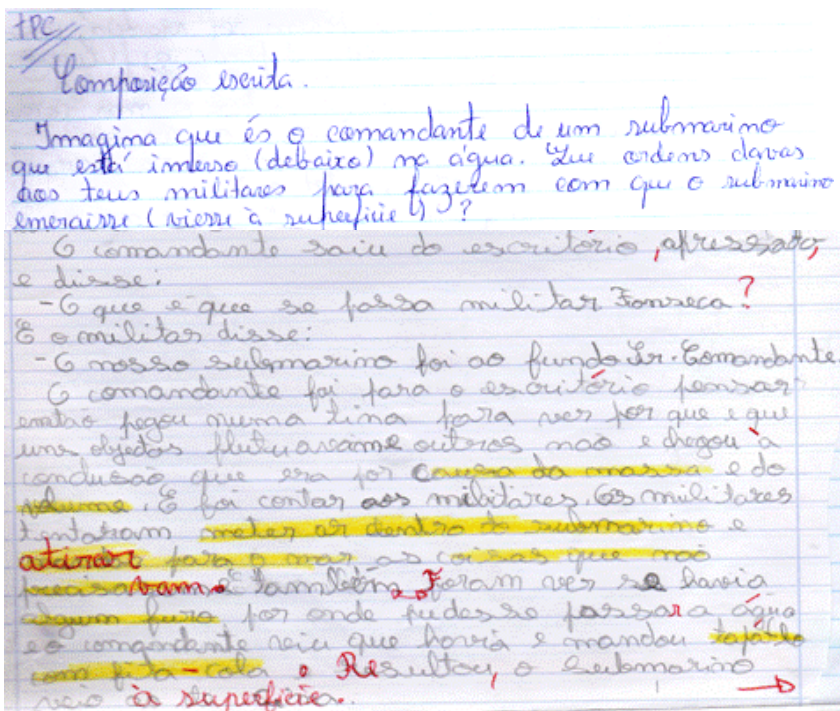 TPC
Composição escrita.
Imagina que és o comandante de um submarino
que está imerso (debaixo) na água. Que ordens davas
aos teus militares para fazerem com que o submarino
emergisse (viesse à superfície) ?
O comandante saiu do escritório, apressado,
e disse:
- O que é que se passa militar Fonseca?
E o militar disse:
- O nosso submarino foi ao fundo Sr. Comandante.
O comandante foi para o escritório pensar
então pegou numa tina para ver por que é que
uns objetos flutuavam e outros não e chegou à
conclusão que era por causa da massa e do
volume. E foi contar aos militares. Os militares
tentaram meter ar dentro do submarino e
atirar para o mar as coisas que não
precisavam. E também. Foram ver se havia
algum furo por onde pudesse passar a água
e o comandante veiu que havia e mandou tapá-lo
com fita-cola. Resultou, o submarino
veio à superfície.